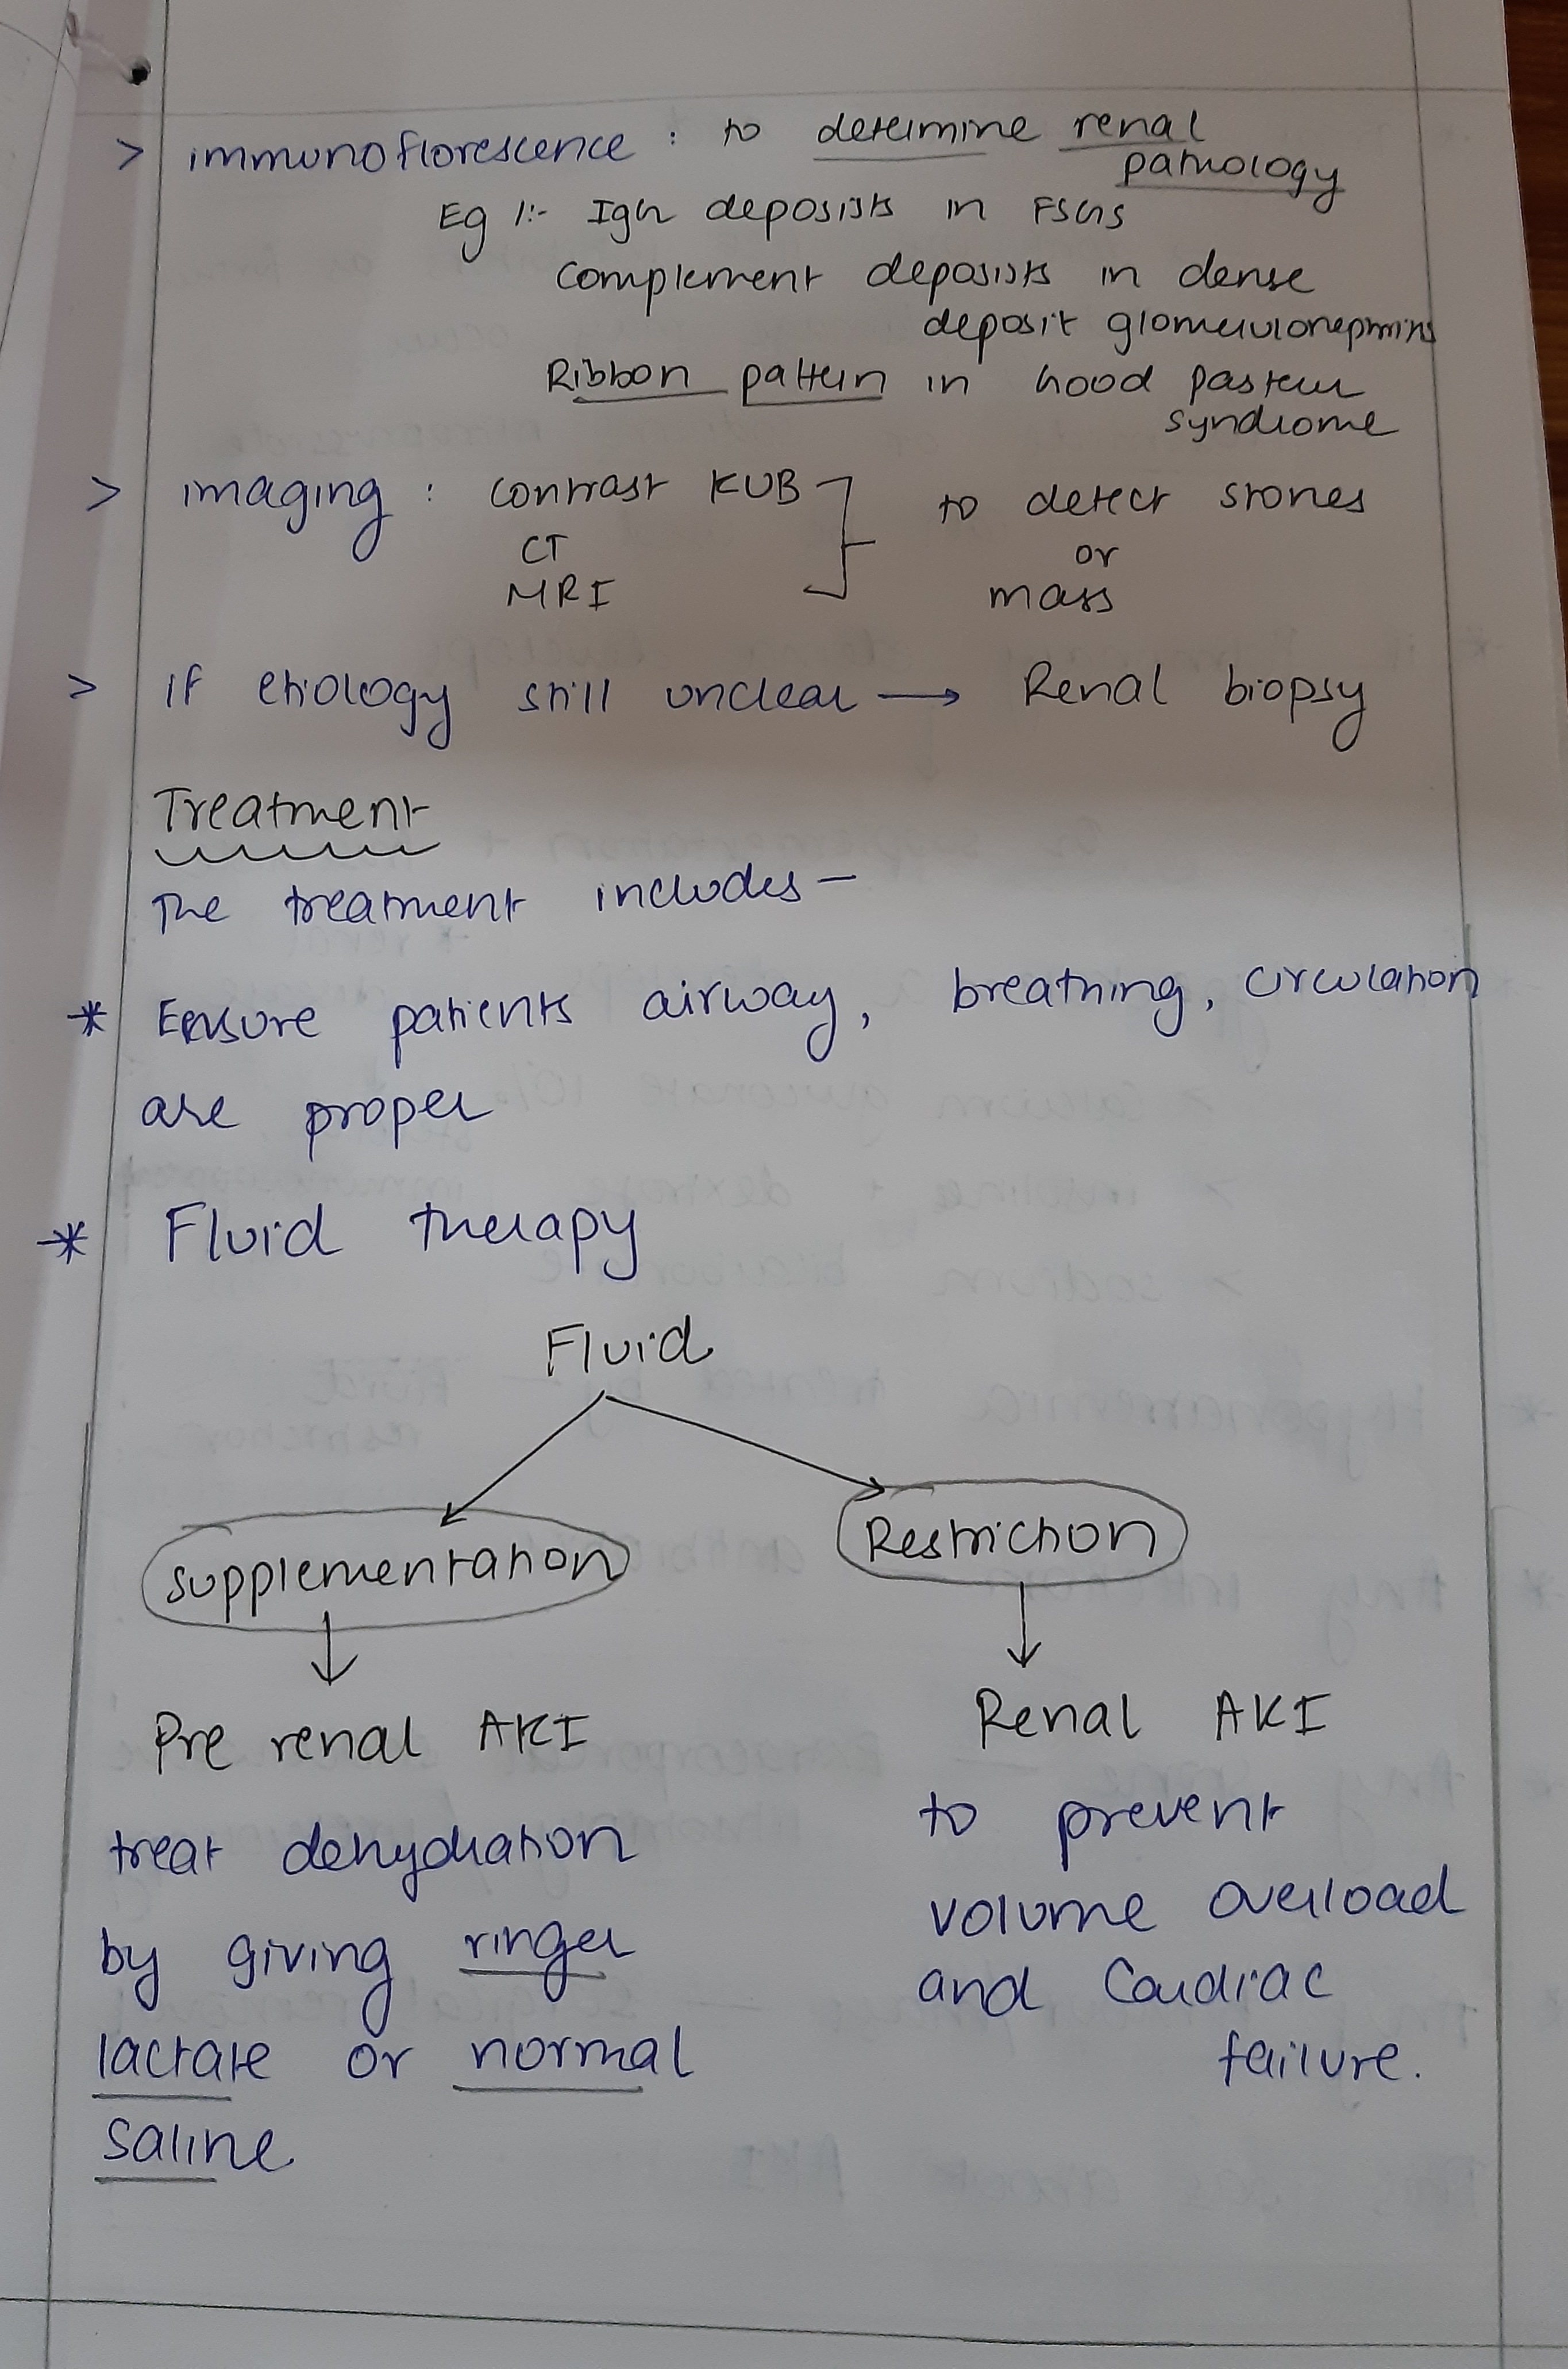 > immunoflorescence : to determine renal
pathology
Eg 1:- IgG deposists in FSGS
complement deposists in dense
deposit glomerulonephritis
Ribbon pattern in Good pasteur
syndrome
> imaging : contrast KUB
CT
MRI
to detect stones
or
mass
> if etiology still unclear → Renal biopsy
Treatment
The treatment includes -
* Ensure patients airway, breathing, circulation
are proper
* Fluid therapy
Fluid
supplementation
Restriction
Pre renal AKI
treat dehydration
by giving ringer
lactate or normal
saline
Renal AKI
to prevent
volume overload
and Cardiac
failure.